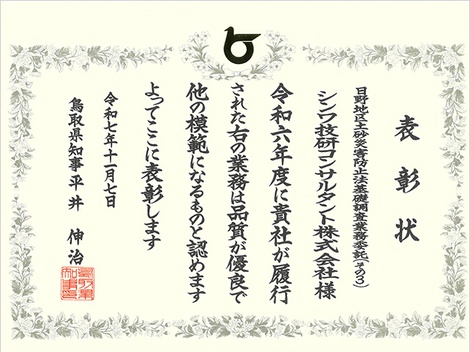 表彰状
日野地区土砂災害防止法基礎調査業務委託(その3)
シンワ技研コンサルタント株式会社 様
令和六年度に貴社が履行
された右の業務は品質が優良で
他の模範になるものと認めます
よってここに表彰します
令和七年十一月七日
鳥取県知事 平井 伸治